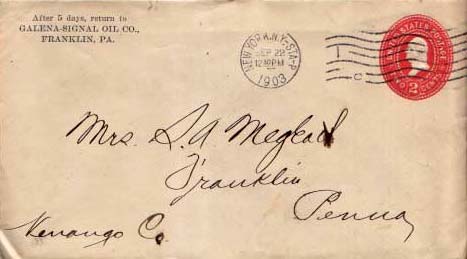 After 5 days, return to
GALENA-SIGNAL OIL CO.,
FRANKLIN, PA.
NEW YORK, N.Y.-STA-P
SEP 29
12 PM
1903
UNITED STATES POSTAGE
TWO 2 CENTS
Mrs. S. A
Franklin
Penna
Venango Co.